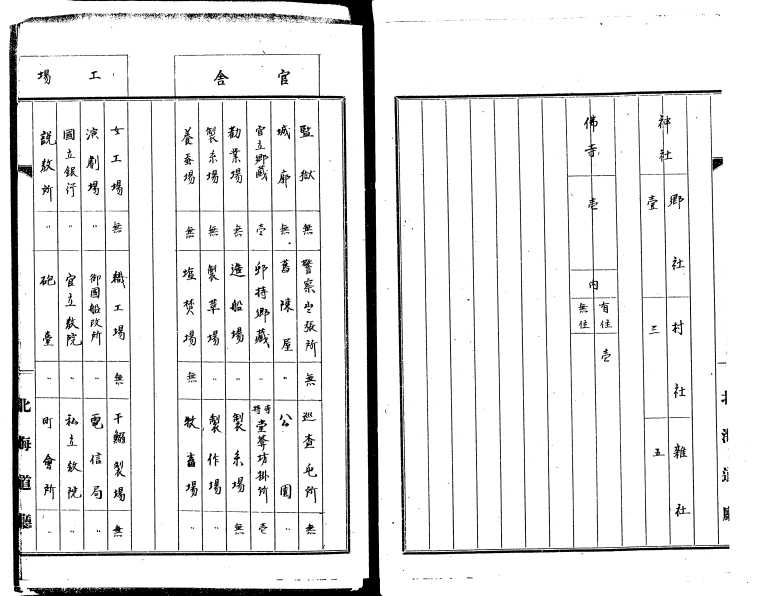 神社
郷社
壹
村社
三
雜社
五
佛寺
壱
内
有住
壱
無住
北海道廳
官舎
監獄
無
警察出張所
無
巡査屯所
無
城廓
無
舊陳屋
〃
公園
〃
官立郷藏
壱
〃
壱
勧業場
無
造船場
〃
製糸場
無
製糸場
無
製革場
〃
製作場
〃
養蚕場
無
塩焚場
無
牧畜場
〃
工場
女工場
無
職工場
無
干鰯製場
無
演劇場
〃
御國船改所
〃
電信局
〃
國立銀行
〃
官立教院
〃
私立教院
〃
説教所
〃
砲臺
〃
町會所
〃
北海道廳